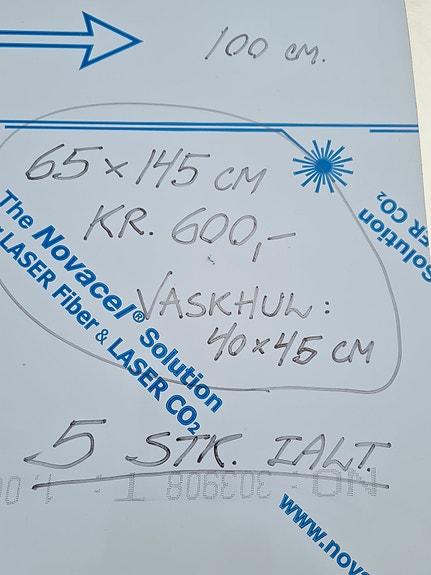 100 CM.
65 x 145 CM
KR. 600,-
VASKHUL:
40 x 45 CM
5 STK. IALT.
The Novacel® Solution
LASER Fiber & LASER CO2
Solution
ER CO2
NO: 303908 T - 1.0
www.nova